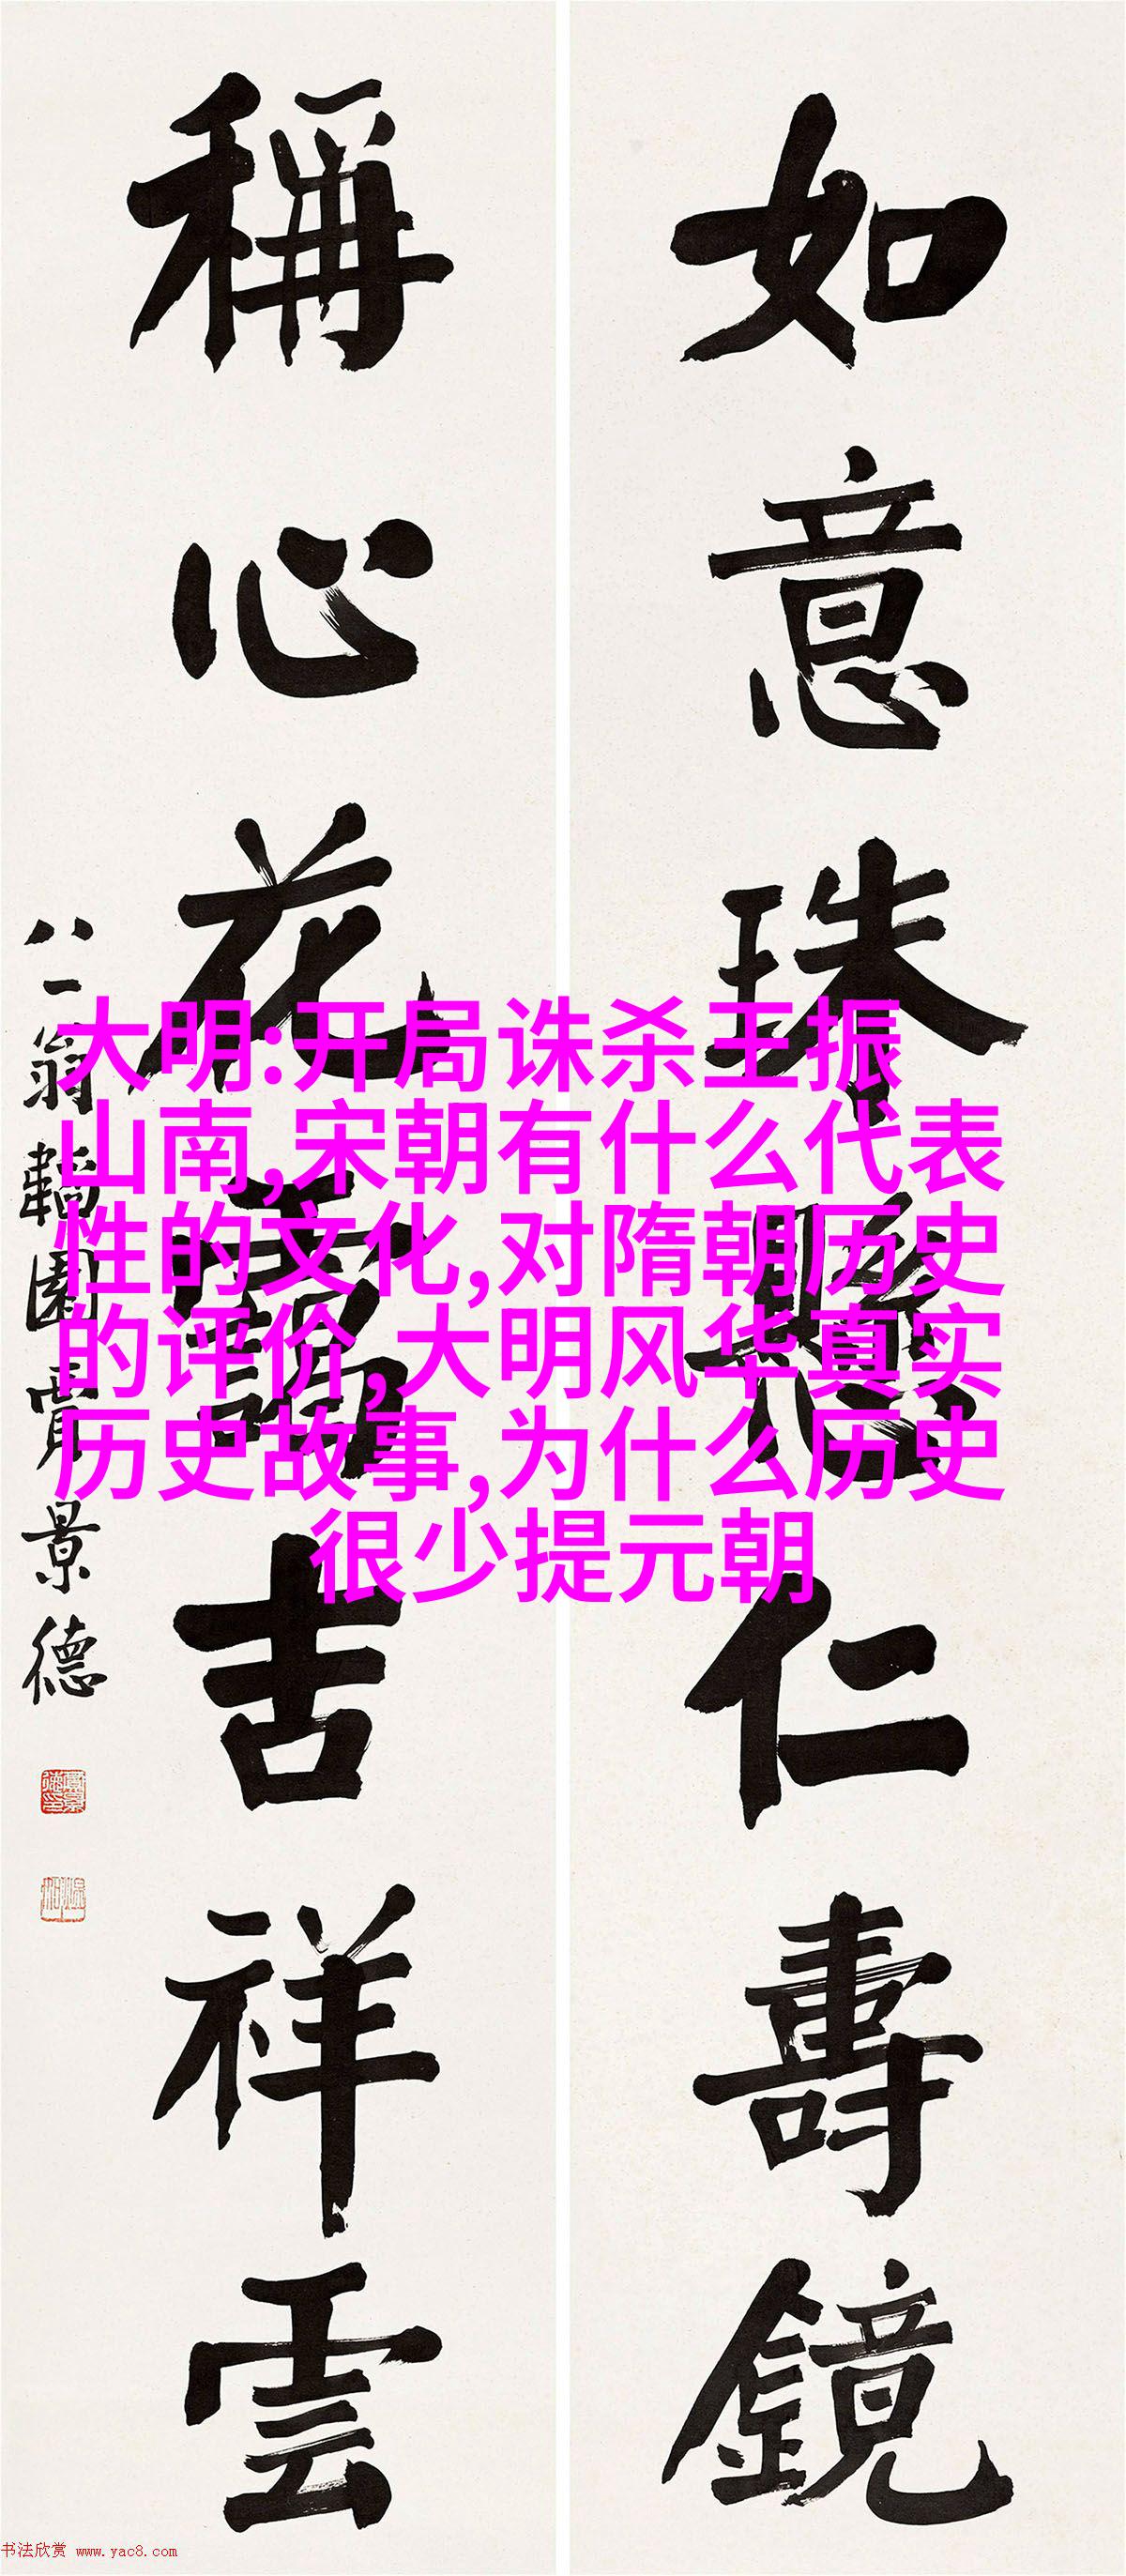 如意珠懸仁壽鏡
稱心花露吉祥雲
八一翁韜園賈景德
大明:开局诛杀王振
山南,宋朝有什么代表
性的文化,对隋朝历史
的评价,大明风华真实
历史故事,为什么历史
很少提元朝
书法欣赏 www.yac8.com